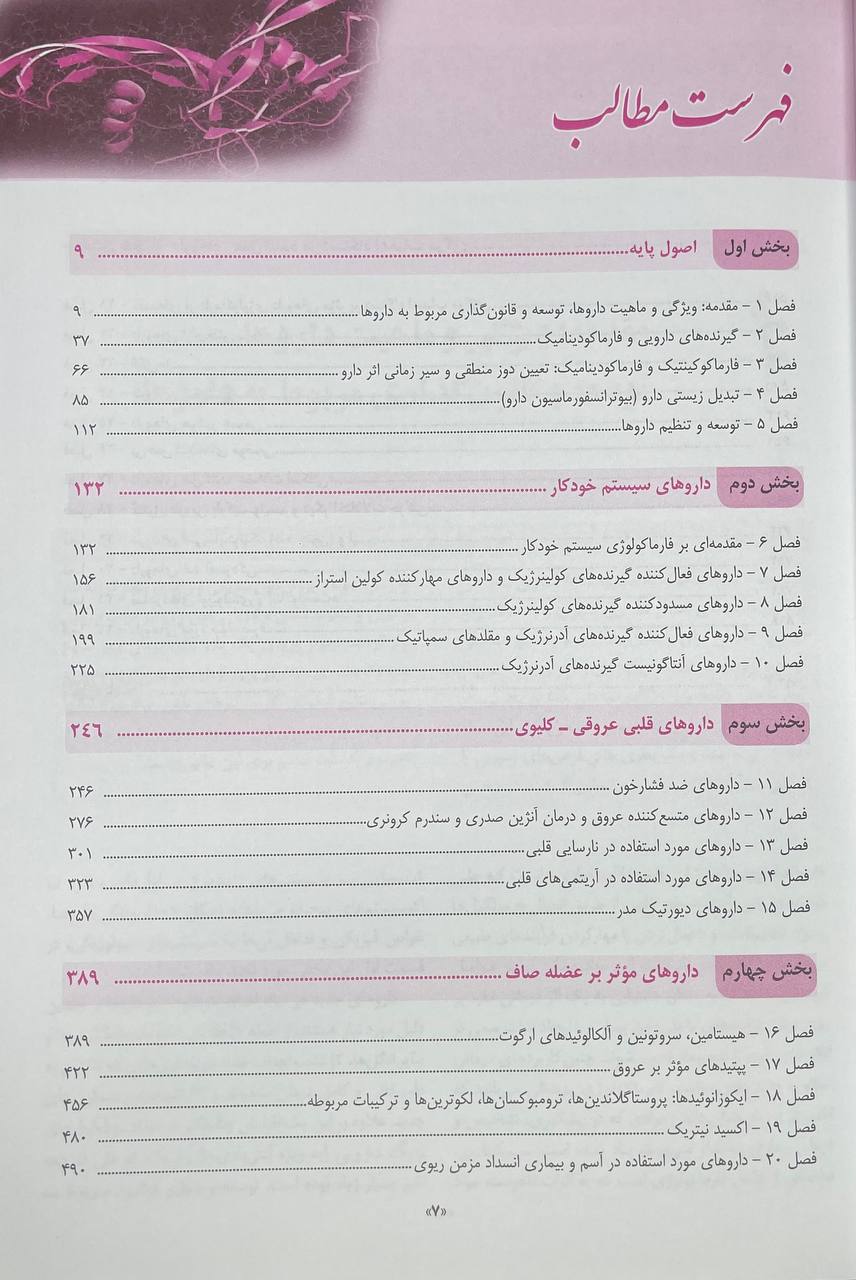 فهرست مطالب
بخش اول اصول پایه ۹
فصل ۱ - مقدمه: ویژگی و ماهیت داروها، توسعه و قانون‌گذاری مربوط به داروها ۹
فصل ۲ - گیرنده‌های دارویی و فارماکودینامیک ۳۷
فصل ۳ - فارماکوکینتیک و فارماکودینامیک: تعیین دوز منطقی و سیر زمانی اثر دارو ۶۶
فصل ۴ - تبدیل زیستی دارو (بیوترانسفورماسیون دارو) ۸۵
فصل ۵ - توسعه و تنظیم داروها ۱۱۲
بخش دوم داروهای سیستم خودکار ۱۳۲
فصل ۶ - مقدمه‌ای بر فارماکولوژی سیستم خودکار ۱۳۲
فصل ۷ - داروهای فعال‌کننده گیرنده‌های کولینرژیک و داروهای مهارکننده کولین استراز ۱۵۶
فصل ۸ - داروهای مسدودکننده گیرنده‌های کولینرژیک ۱۸۱
فصل ۹ - داروهای فعال‌کننده گیرنده‌های آدرنرژیک و مقلدهای سمپاتیک ۱۹۹
فصل ۱۰ - داروهای آنتاگونیست گیرنده‌های آدرنرژیک ۲۲۵
بخش سوم داروهای قلبی عروقی ـ کلیوی ۲٤٦
فصل ۱۱ - داروهای ضد فشارخون ۲۴۶
فصل ۱۲ - داروهای متسع‌کننده عروق و درمان آنژین صدری و سندرم کرونری ۲۷۶
فصل ۱۳ - داروهای مورد استفاده در نارسایی قلبی ۳۰۱
فصل ۱۴ - داروهای مورد استفاده در آریتمی‌های قلبی ۳۲۳
فصل ۱۵ - داروهای دیورتیک مدر ۳۵۷
بخش چهارم داروهای مؤثر بر عضله صاف ۳۸۹
فصل ۱۶ - هیستامین، سروتونین و آلکالوئیدهای ارگوت ۳۸۹
فصل ۱۷ - پپتیدهای مؤثر بر عروق ۴۲۲
فصل ۱۸ - ایکوزانوئیدها: پروستاگلاندین‌ها، ترومبوکسان‌ها، لکوترین‌ها و ترکیبات مربوطه ۴۵۶
فصل ۱۹ - اکسید نیتریک ۴۸۰
فصل ۲۰ - داروهای مورد استفاده در آسم و بیماری انسداد مزمن ریوی ۴۹۰
«۷»